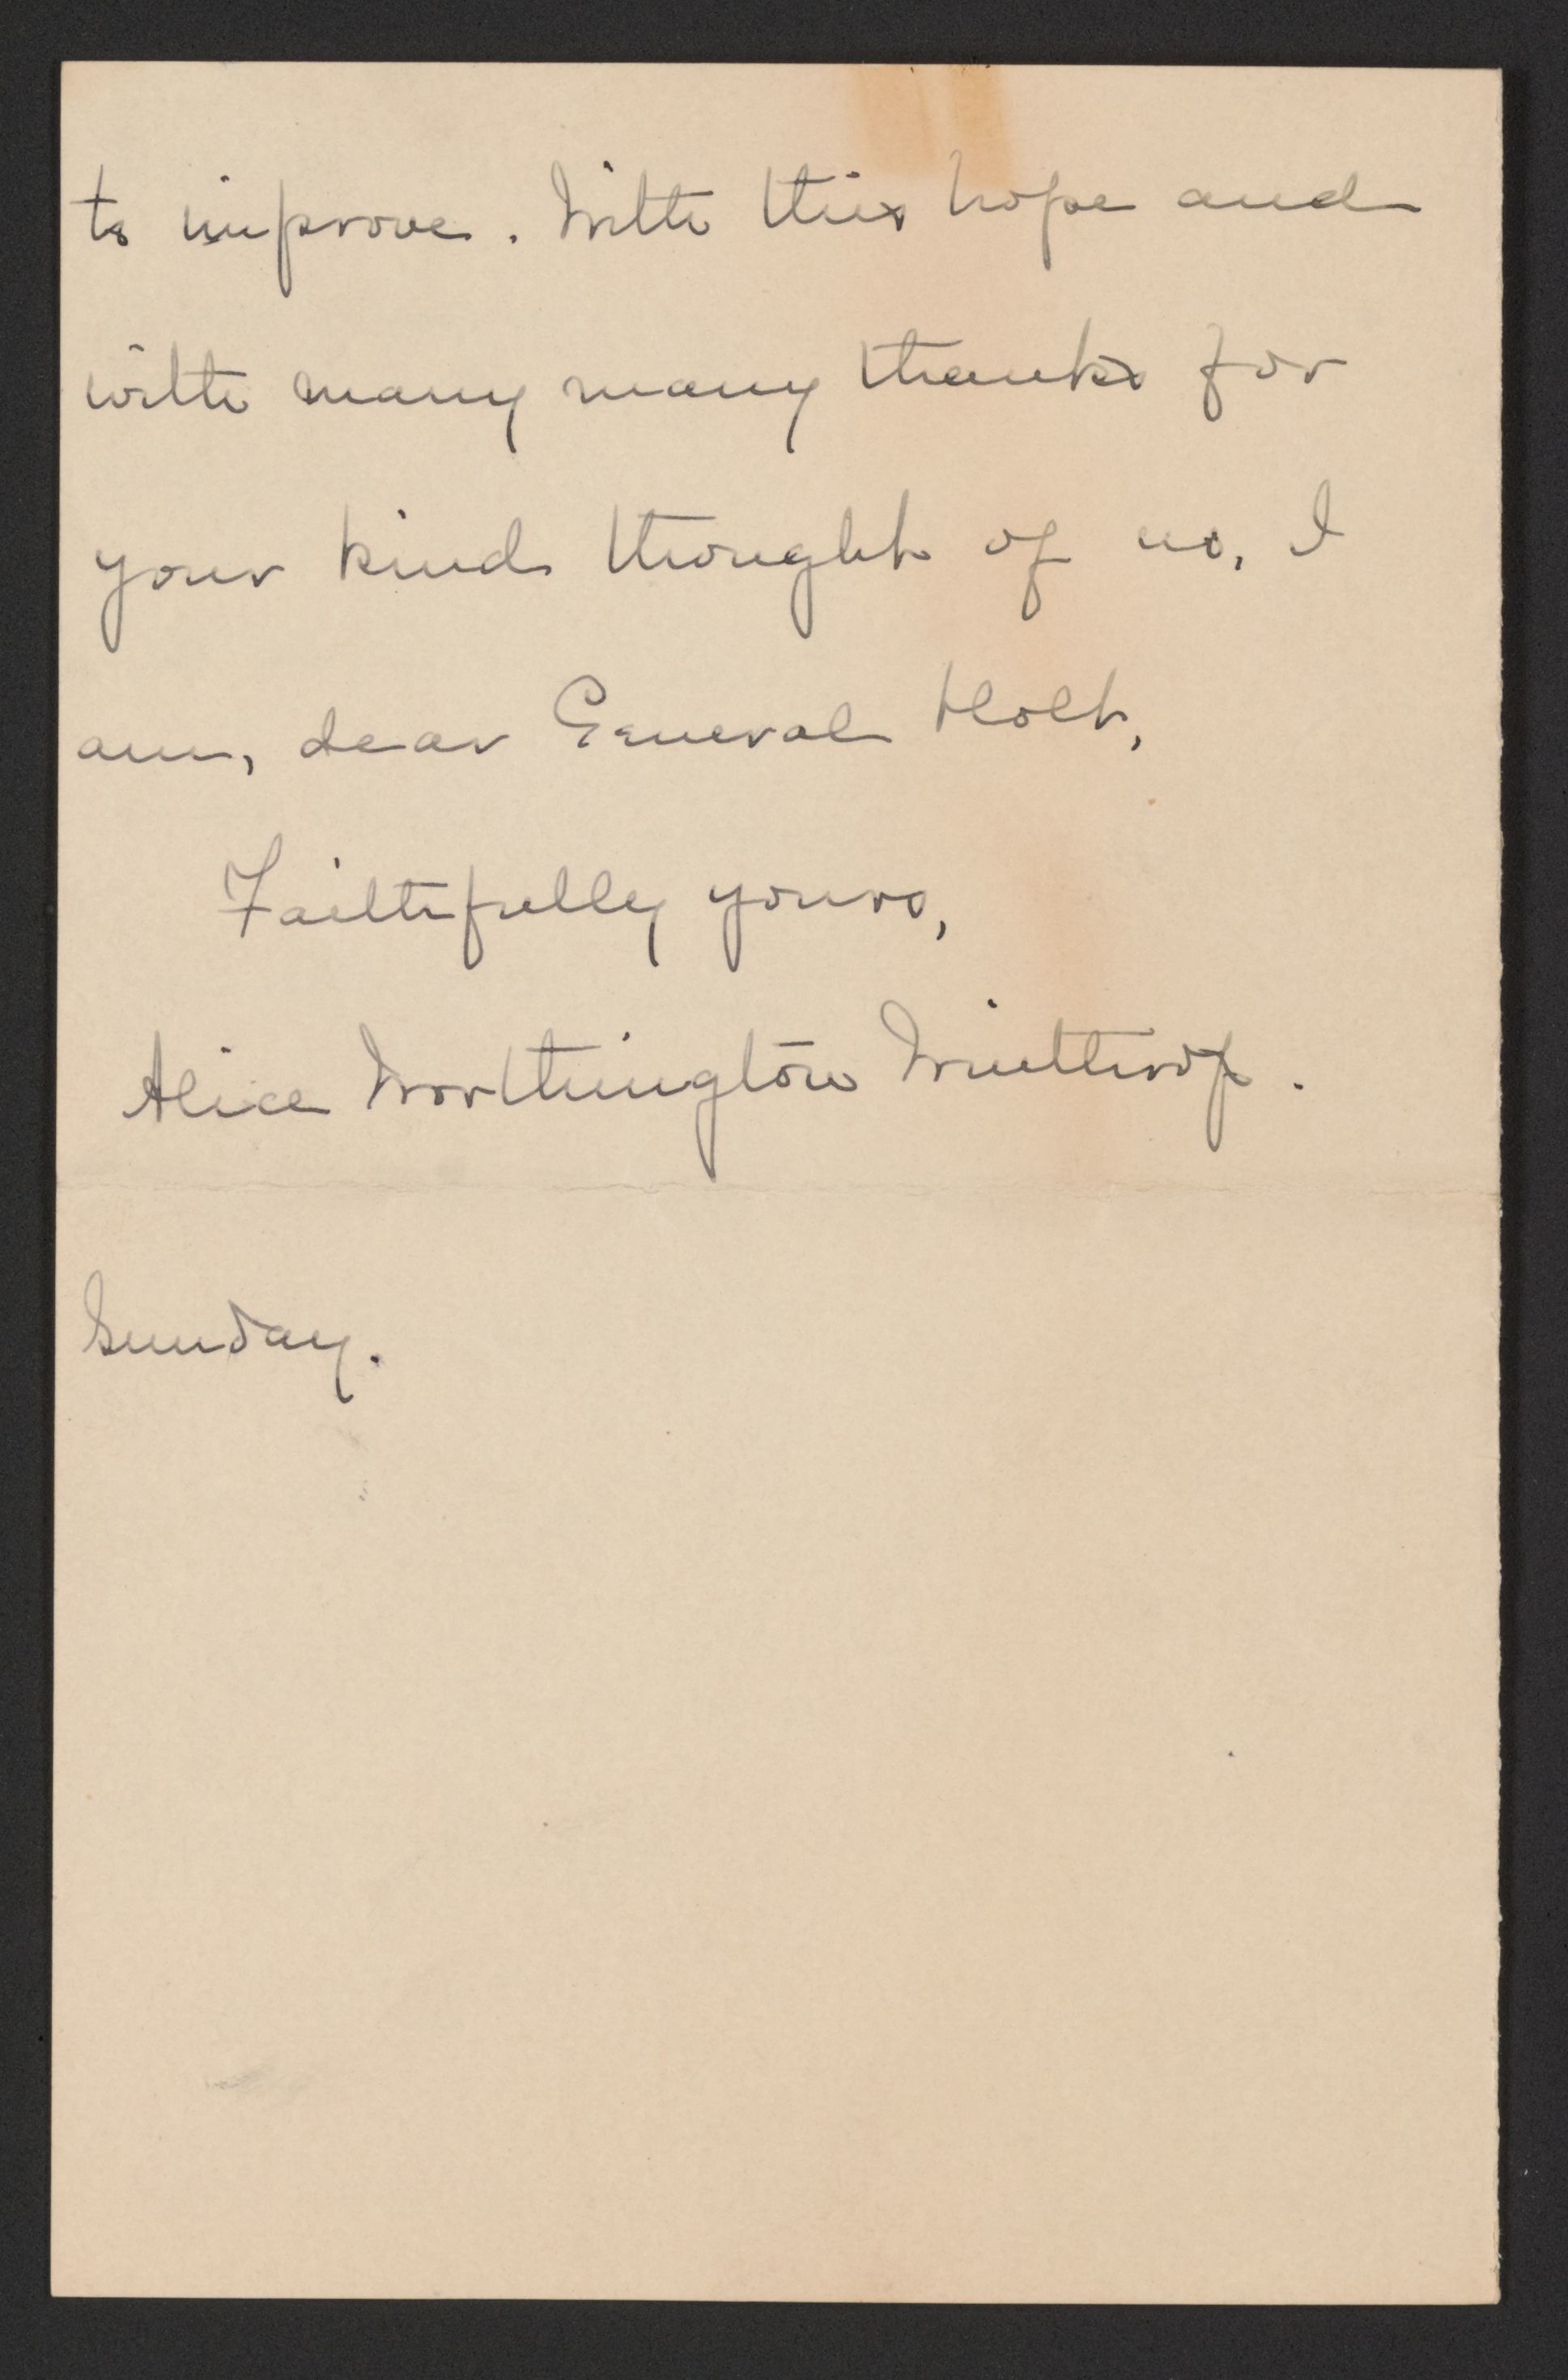 to improve. With this hope and
with many many thanks for
your kind thought of us, I
am, dear General Holt,
Faithfully yours,
Alice Worthington Winthrop.
Sunday.